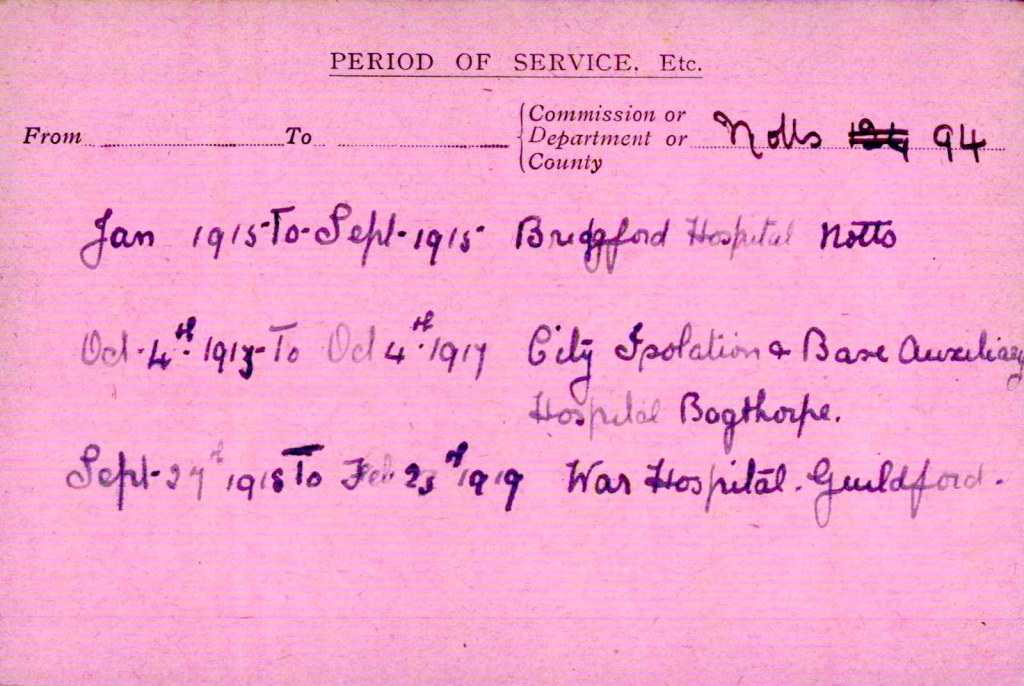 PERIOD OF SERVICE. Etc.
From To Commission or Department or County Notts 94
Jan 1915 To Sept. 1915 Bridgford Hospital Notts
Oct. 4th 1915 To Oct 4th 1917 City Isolation & Base Auxiliary
Hospital Bagthorpe.
Sept. 27th 1918 To Feb 23rd 1919 War Hospital. Guildford.